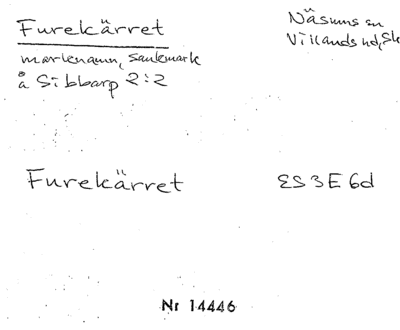 Furekärret
Näsums sn
Villands hd, Sk
markenamn, sankmark
å Sibbarp 2:2
Furekärret
ES 3 E 6d
Nr 14446